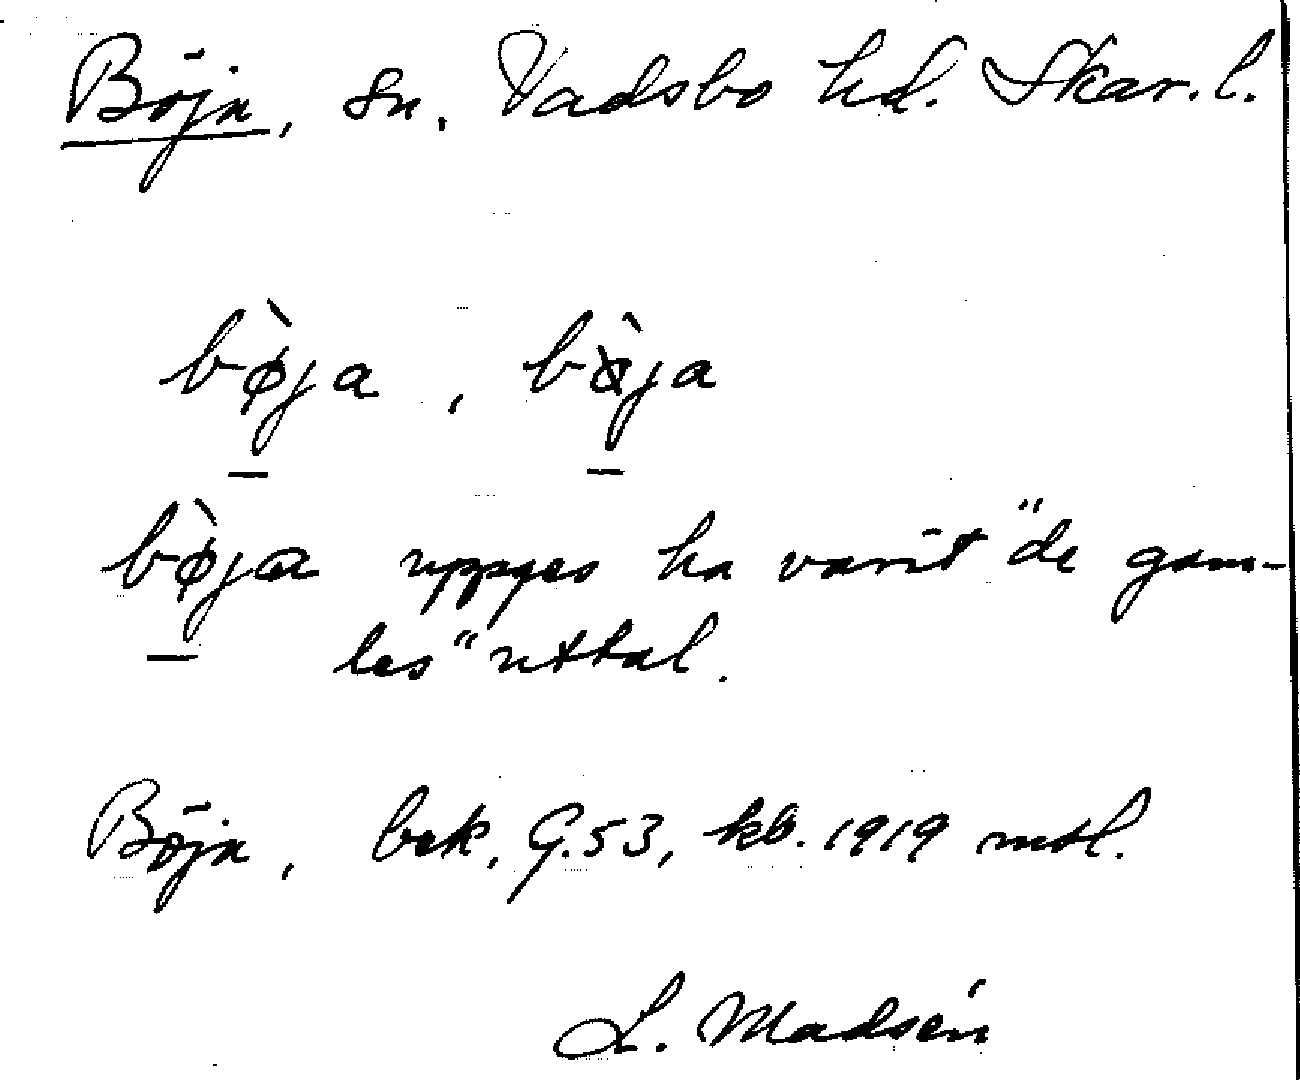 Böja, sn, Vadsbo hd. Skar.l.
bø̀ja, bòja
bø̀ja uppges ha varit "de gam-
les" uttal.
Böja, bek, G.53, kb. 1919 mtl.
L. Madsén